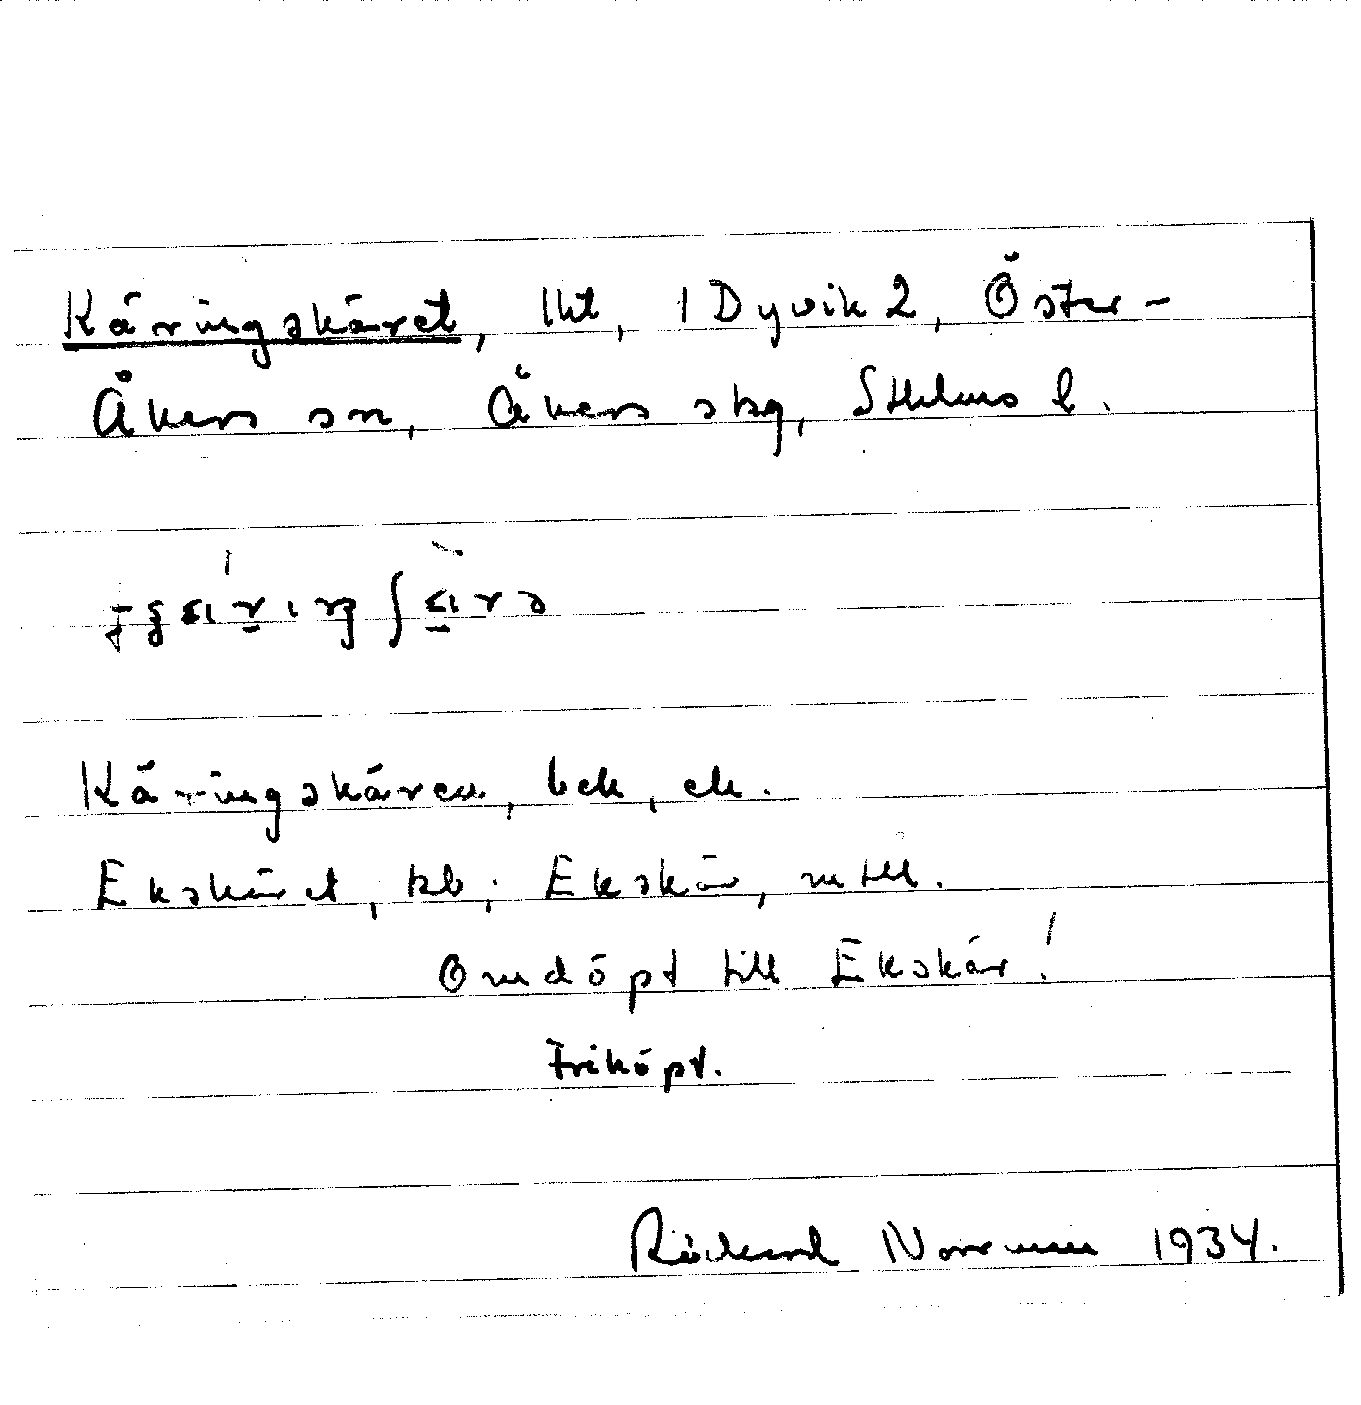 Käringskäret, lht, 1 Dyvik 2, Öster-
Åkers sn, Åkers skg, Sthlms l.
Käringskären, bek, ek.
Ekskäret, kb; Ekskär, mtll.
Omdöpt till Ekskär!
Friköpt.
Rickard Norrman 1934.